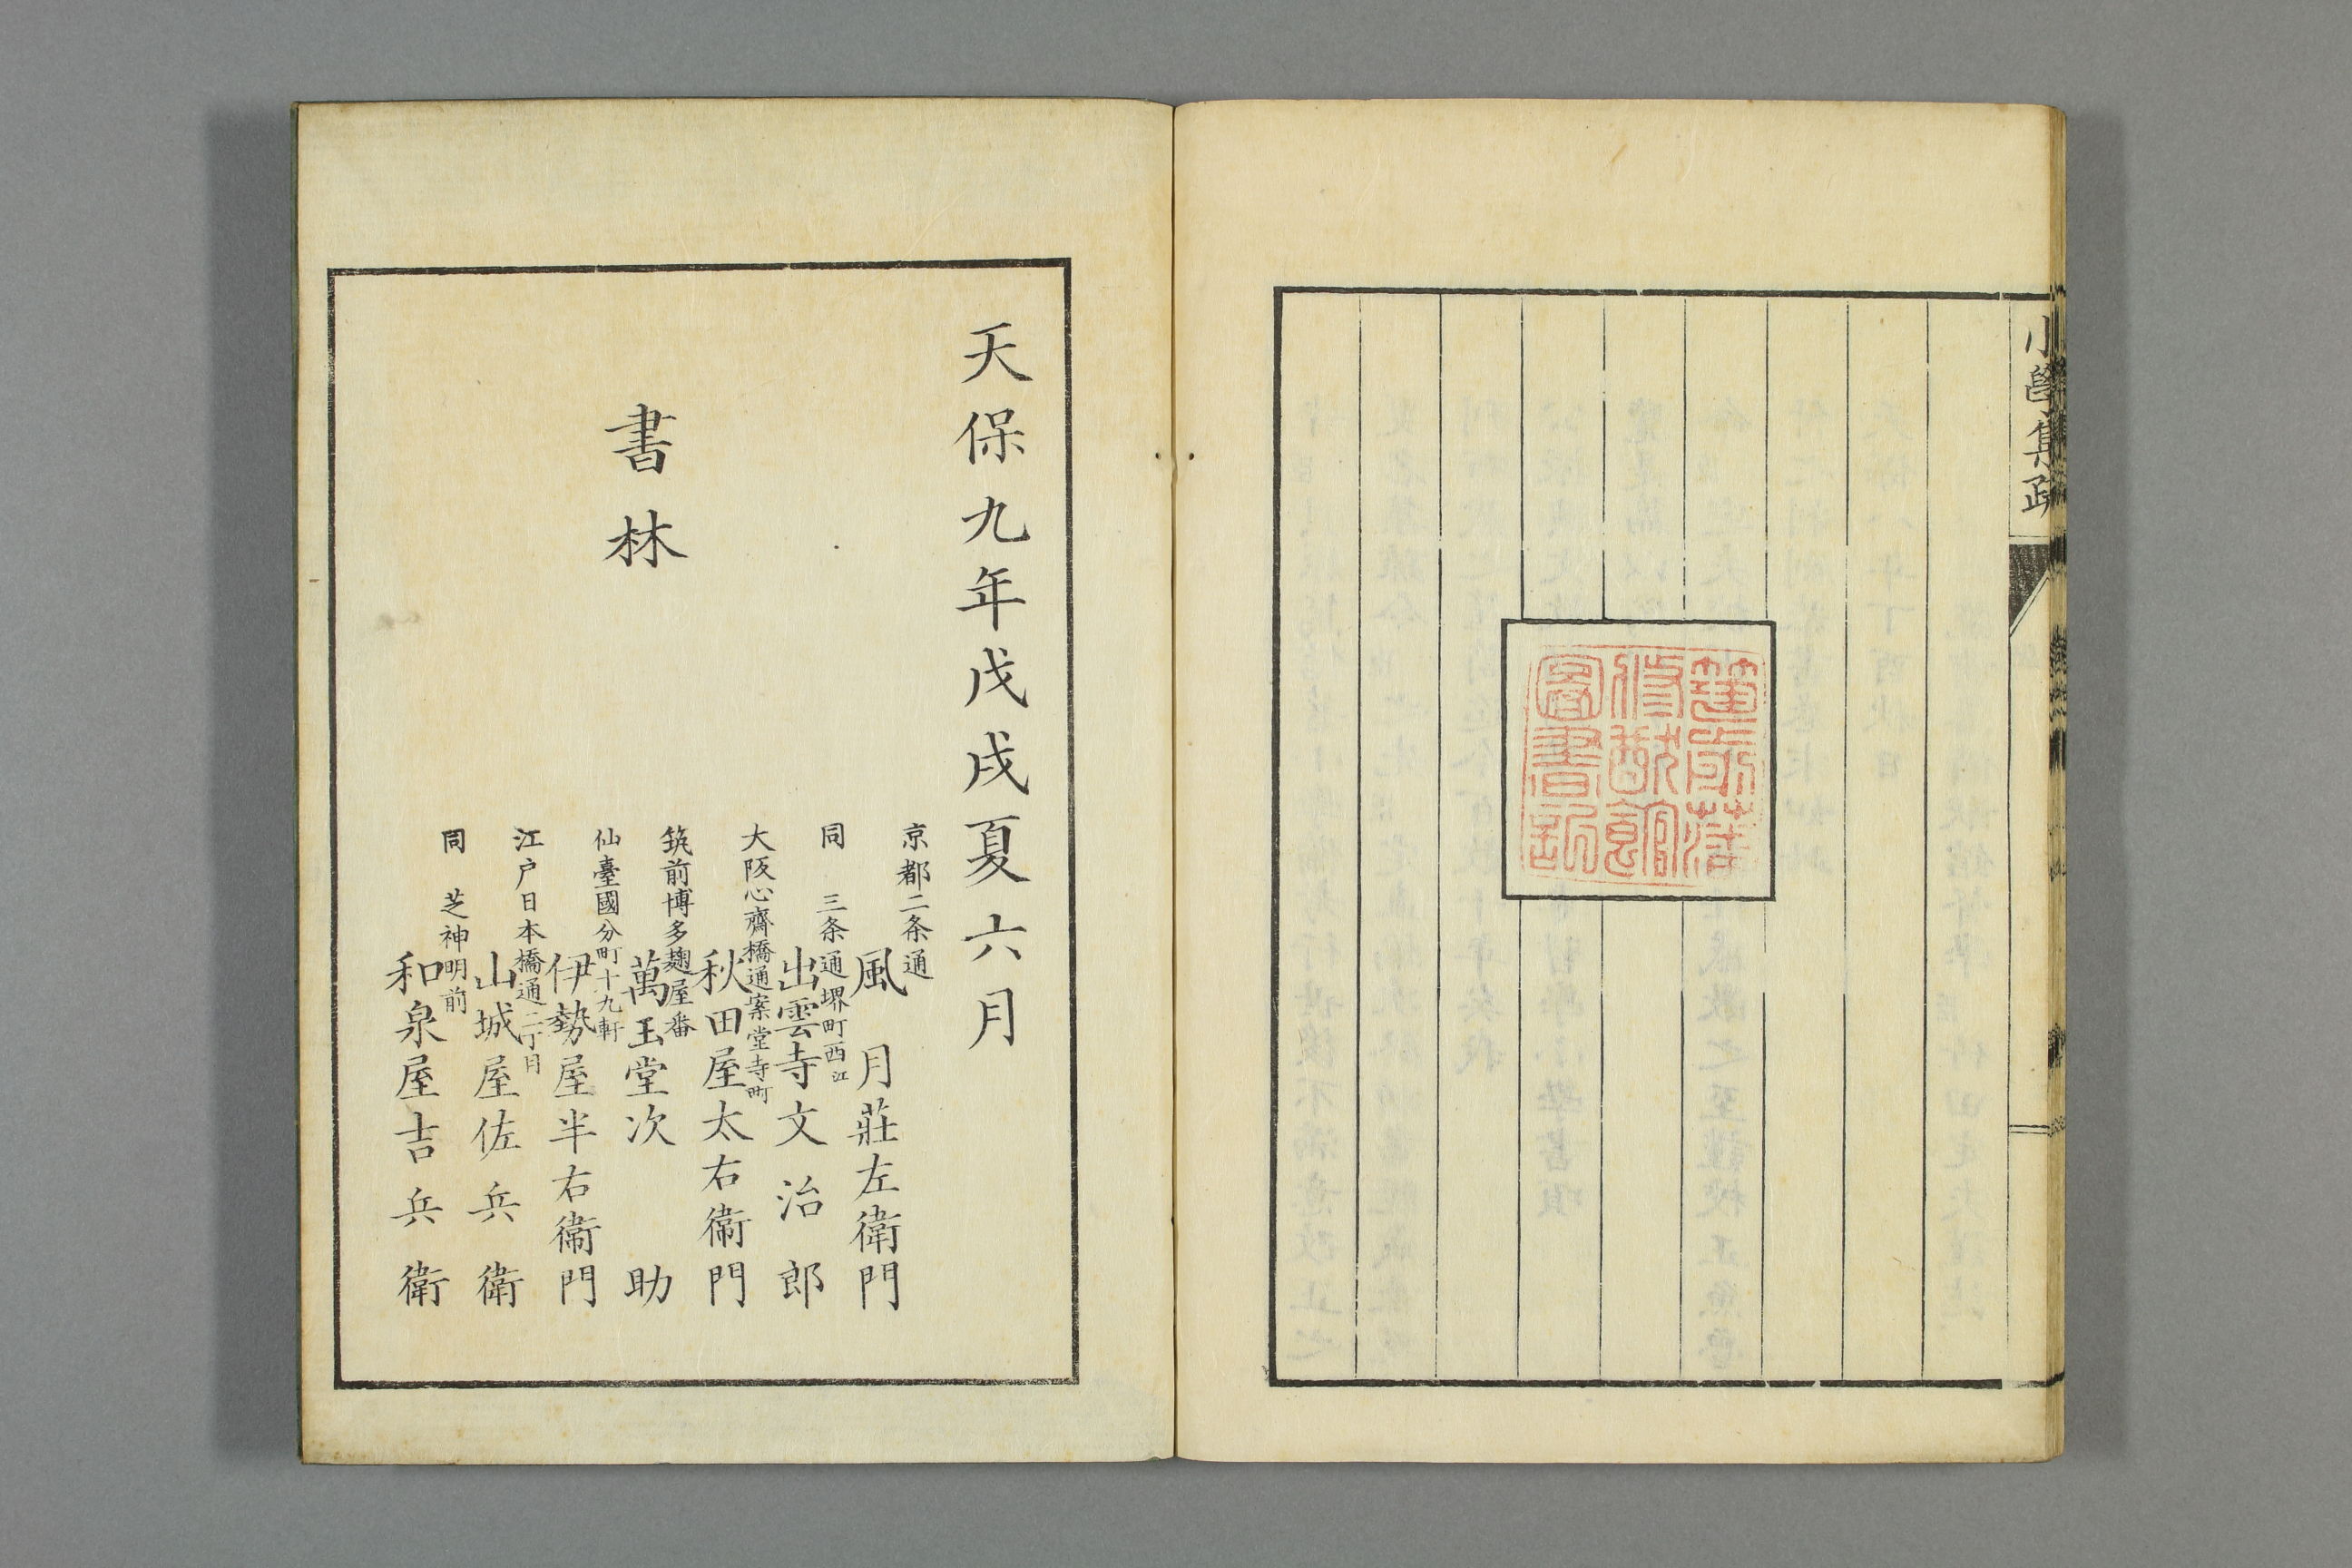 小學集疏
筑前藩
修猷館
圖書記
天保九年戊戌夏六月
書林
京都二条通
風月莊左衛門
同 三条通堺町西江
出雲寺文治郎
大阪心齊橋通案堂寺町
秋田屋太右衛門
筑前博多麹屋番
萬玉堂次助
仙臺國分町十九軒
伊勢屋半右衛門
江戸日本橋通二丁目
山城屋佐兵衛
同 芝神明前
和泉屋吉兵衛